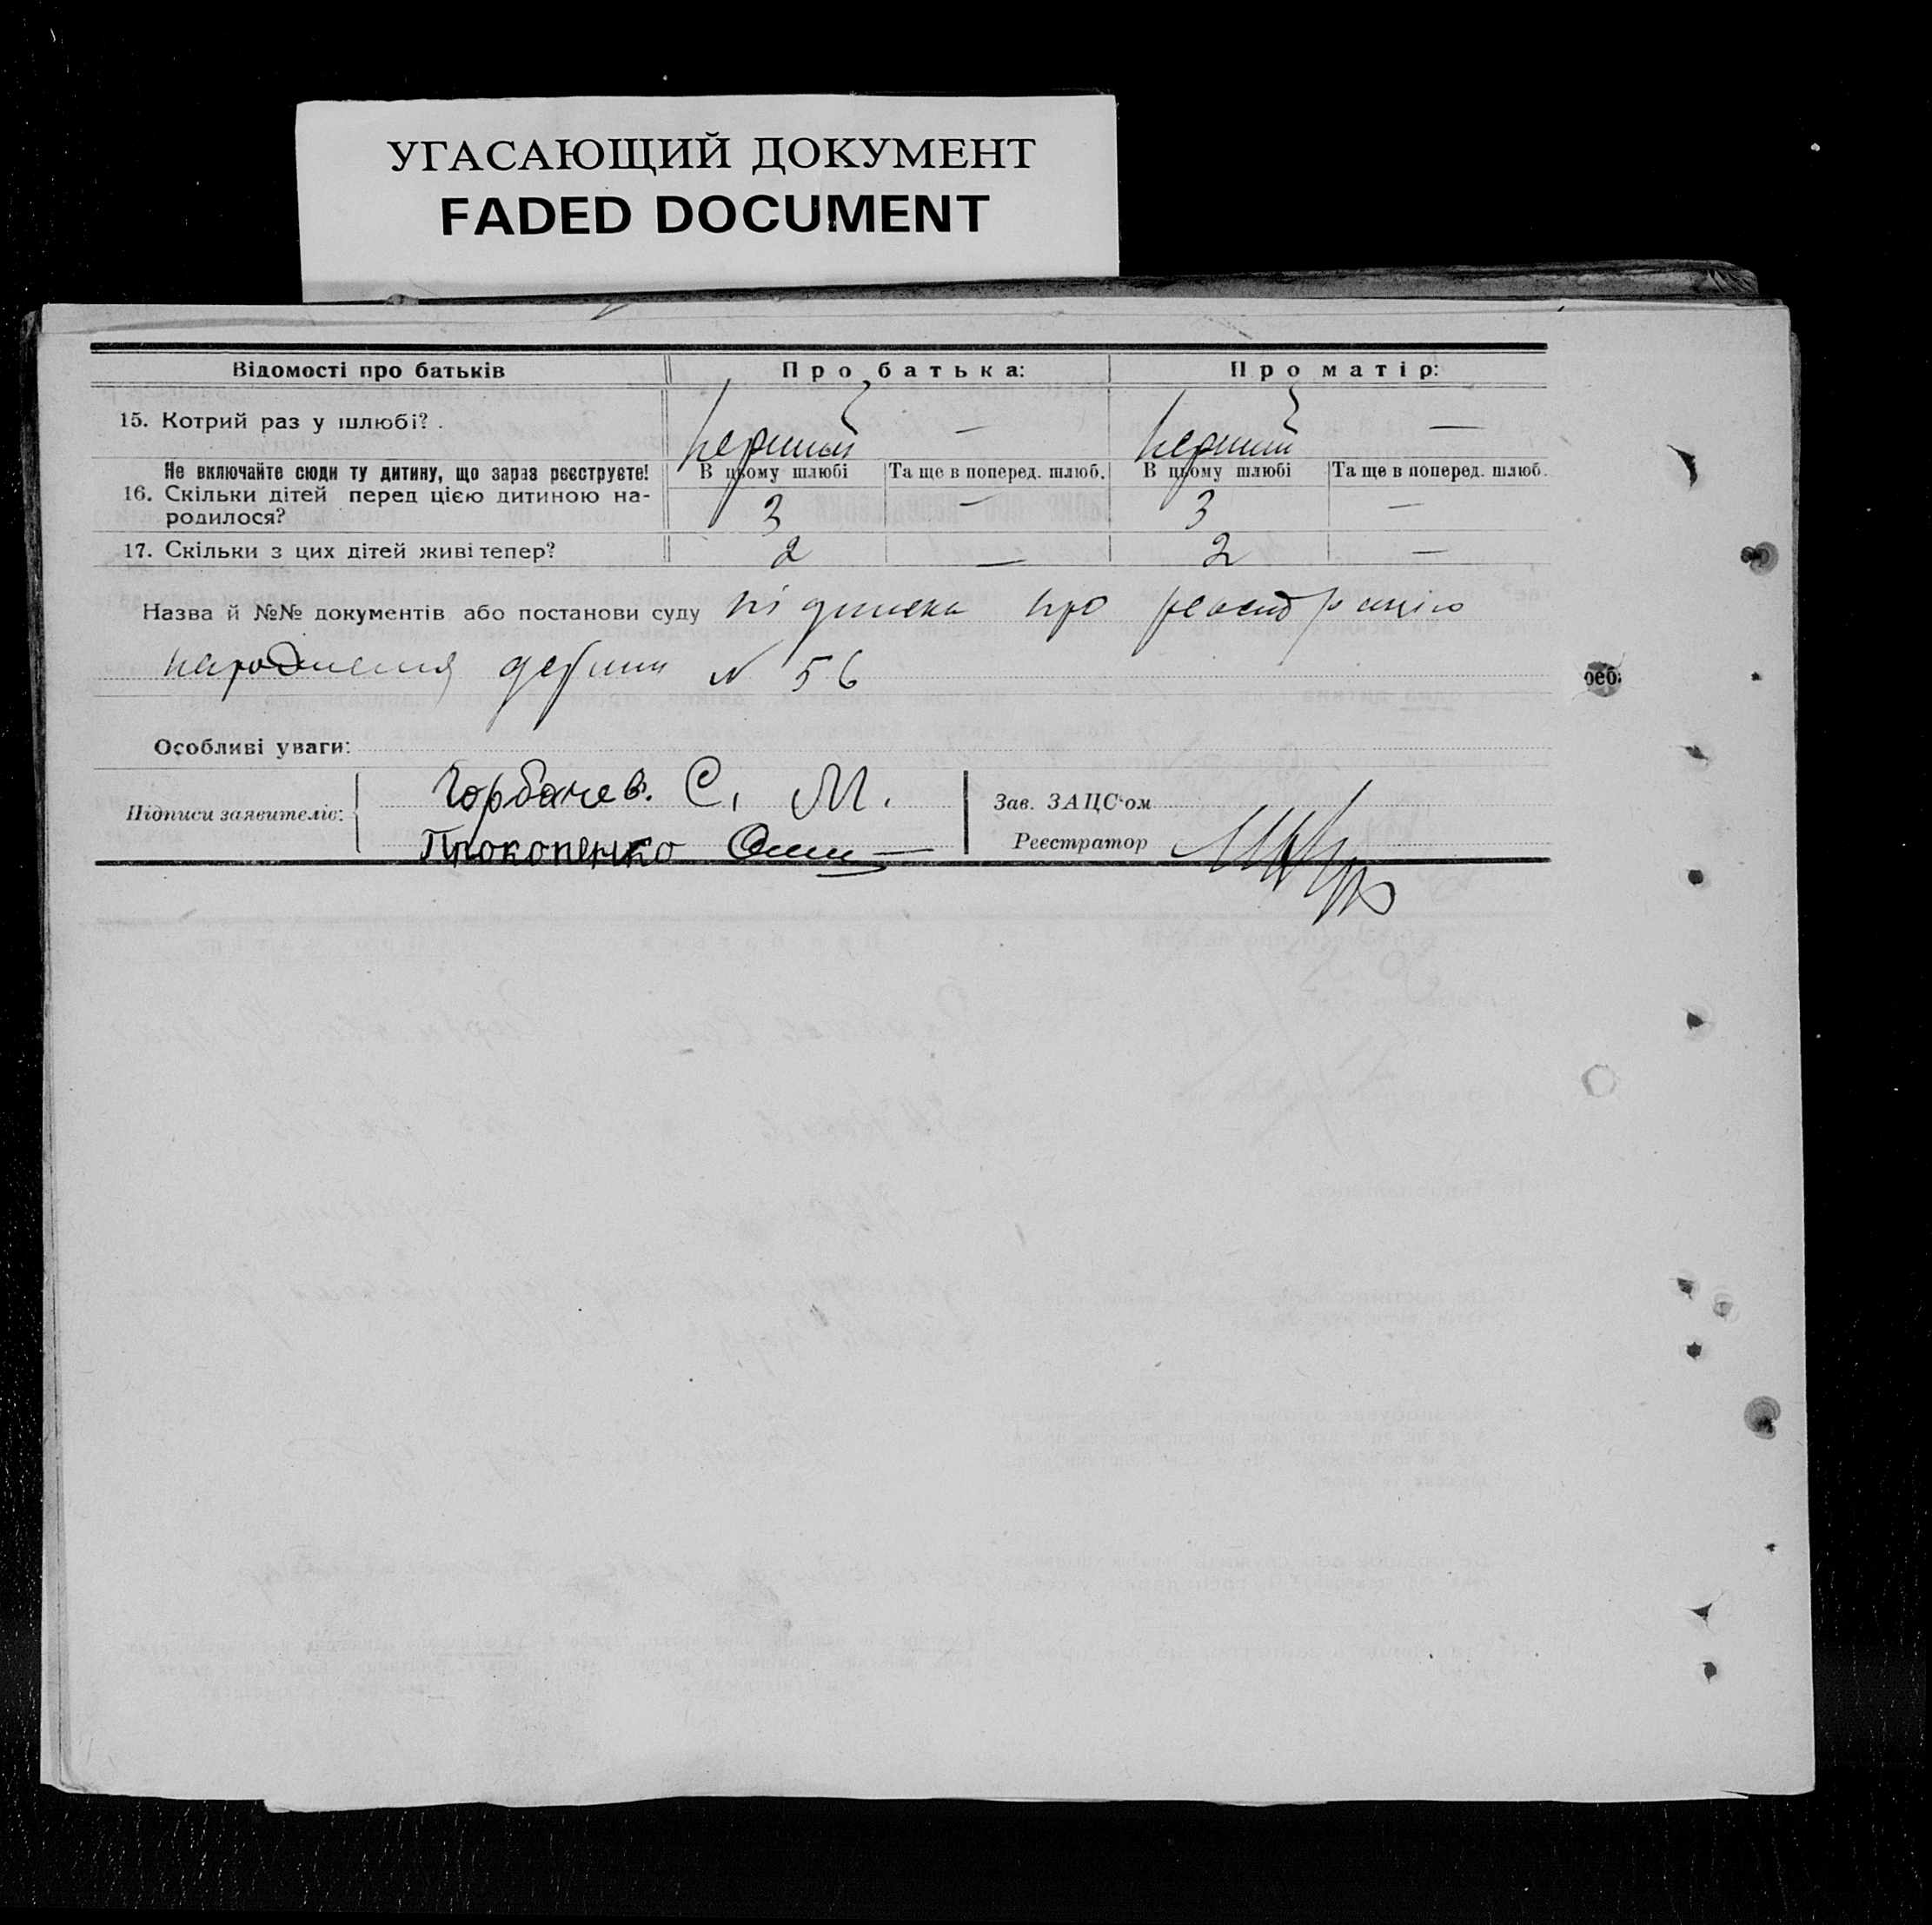 УГАСАЮЩИЙ ДОКУМЕНТ
FADED DOCUMENT
Відомості про батьків Про батька: Про матір:
15. Котрий раз у шлюбі? . перший — перший —
Не включайте сюди ту дитину, що зараз реєструєте! В цьому шлюбі Та ще в поперед. шлюб. В цьому шлюбі Та ще в поперед. шлюб.
16. Скільки дітей перед цією дитиною на-
родилося? 3 — 3 —
17. Скільки з цих дітей живі тепер? 2 — 2 —
Назва й №№ документів або постанови суду підписка про реєстрацію
народження дитини № 56
Особливі уваги:
Підписи заявителів: Горбачев. С, М. Зав. ЗАЦС'ом
Прокопенко Реєстратор